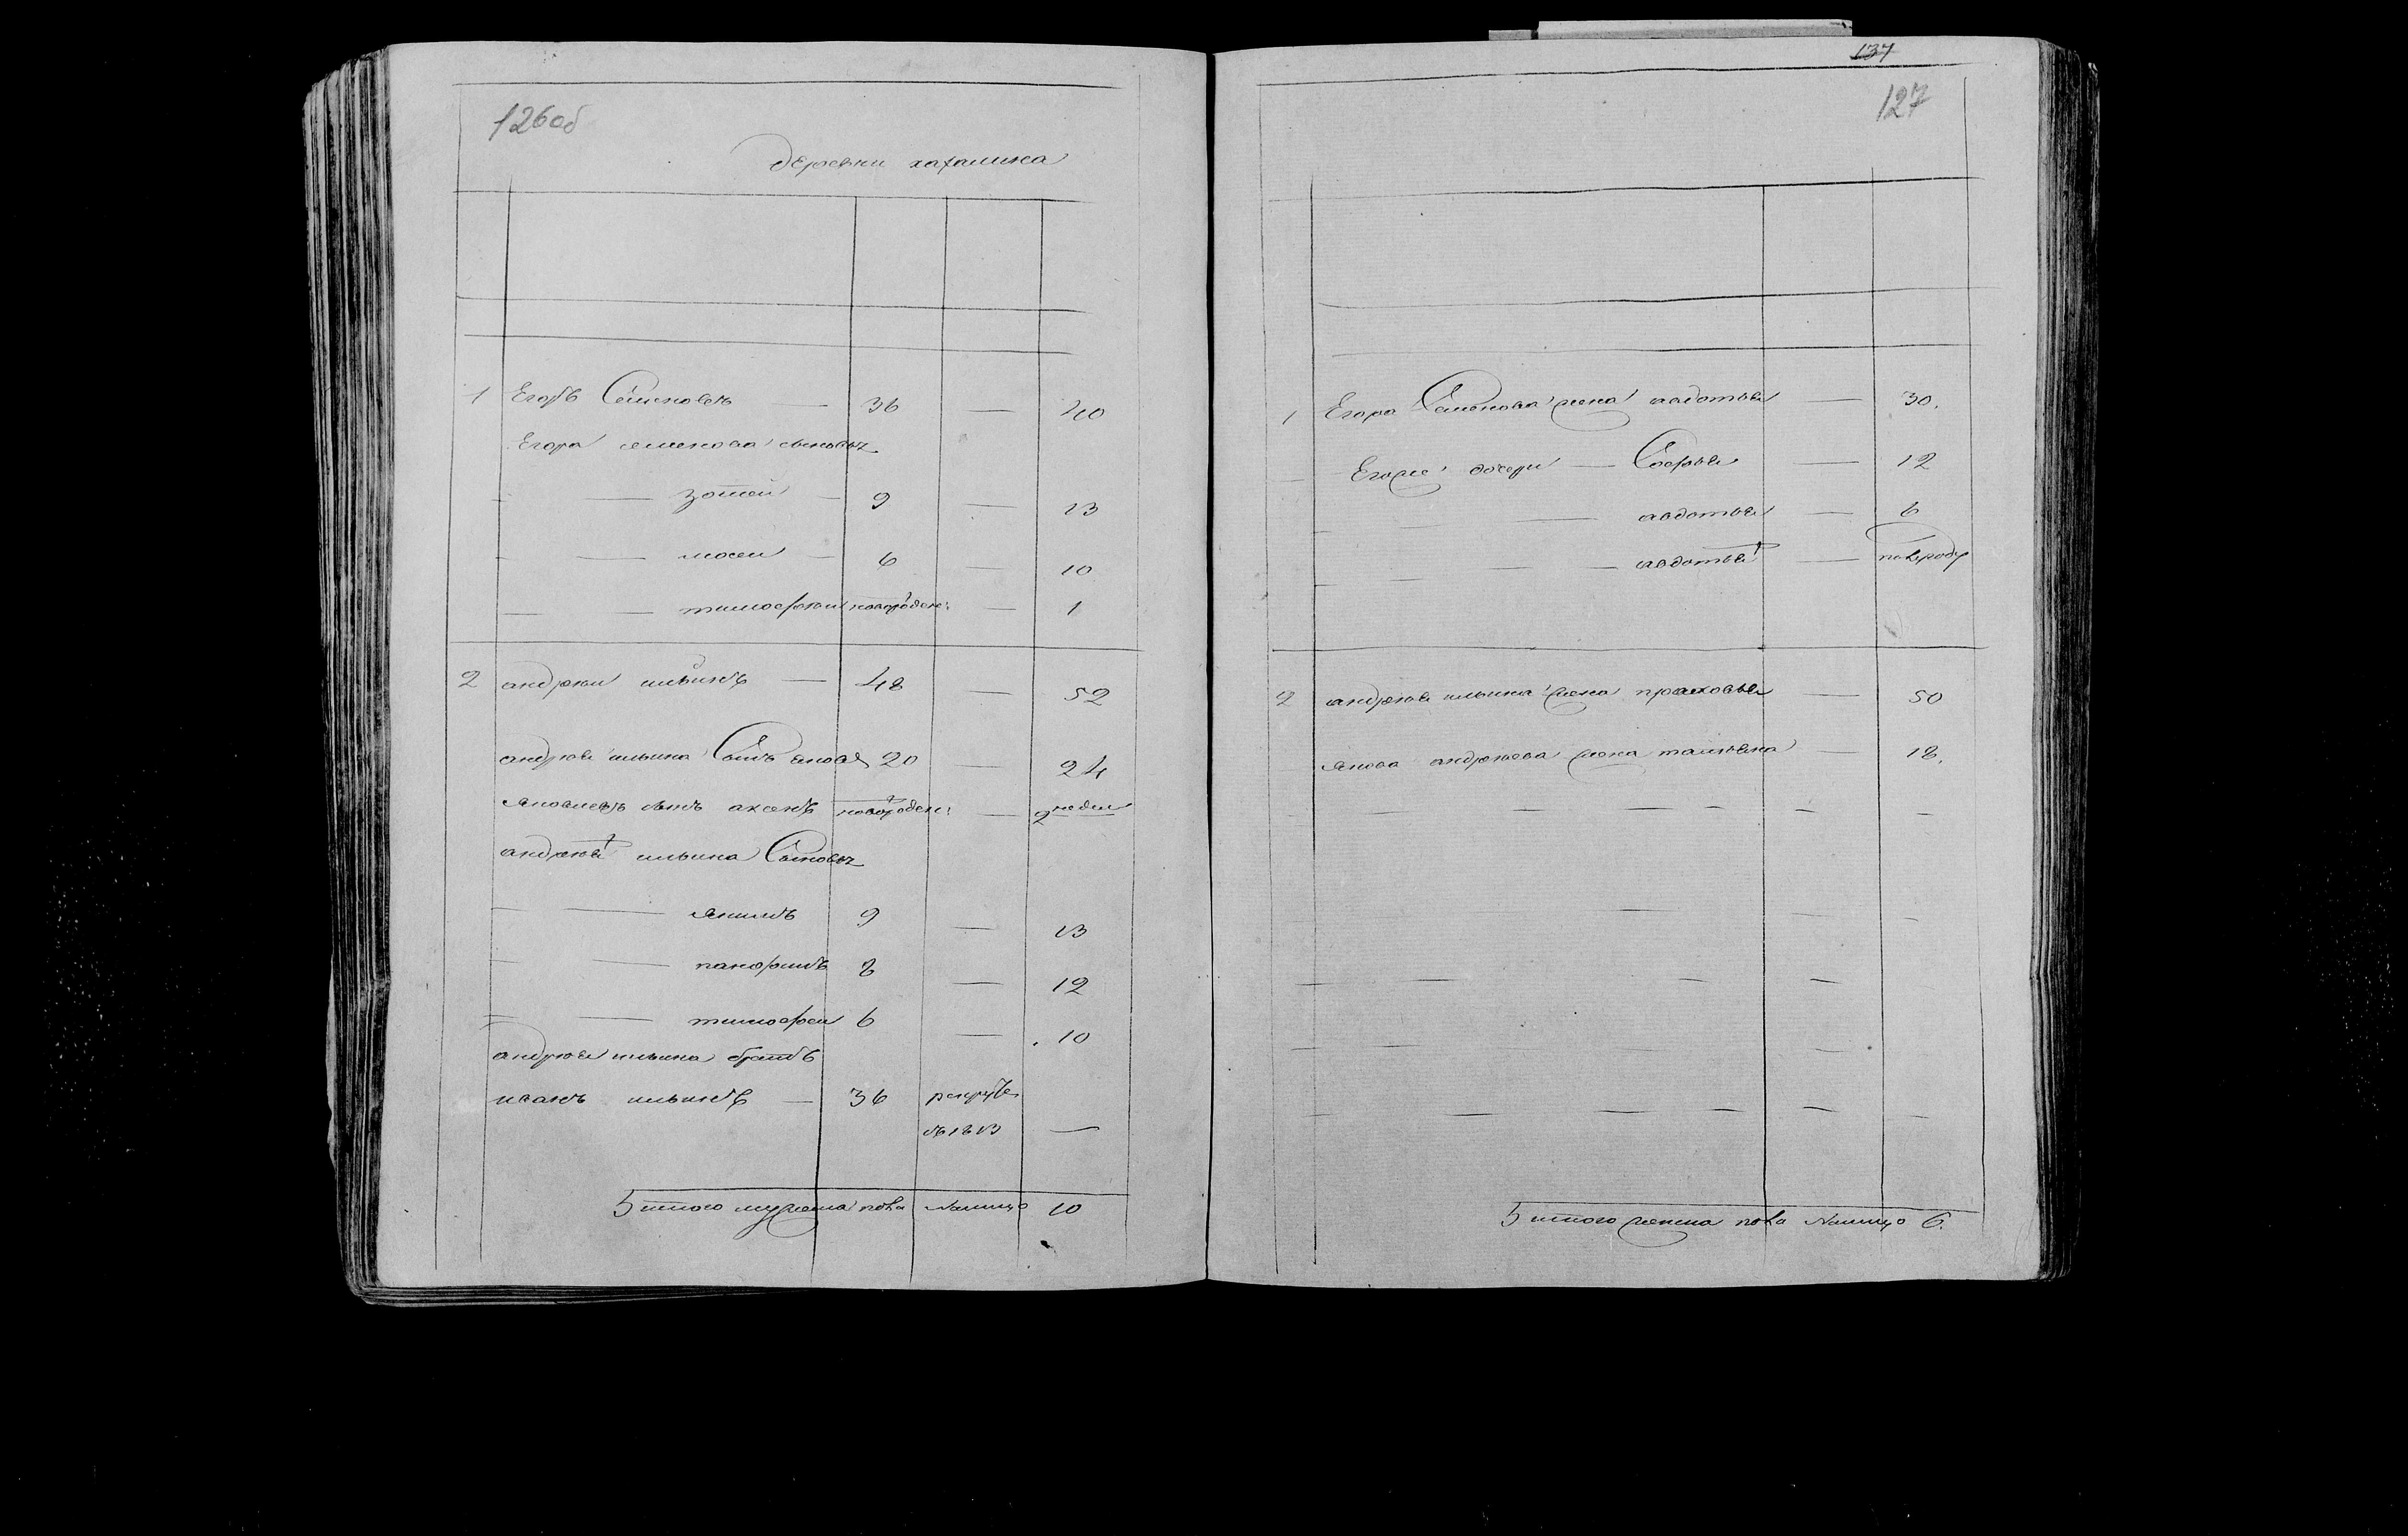 126об
деревни
1 Егоръ Семеновъ — 36 — 40
Егора семенова сыновьѧ
— зотей — 9 — 13
— мосеи — 6 — 10
— тимофеи новорожден: — 1
2 андреи ильинъ — 48 — 52
андрея ильина Сынъ яковъ 20 — 24
яковлевъ сынъ новорожден: — 2 недел
андрея ильина Сыновьѧ
— якимъ 9 — 13
— панфилъ 8 — 12
— тимофеи 6 — 10
андрея ильина братъ
иванъ ильинъ — 36 рекрутъ
въ 1813 —
итого мужеска пола налицо 10
137
127
1 Егора Семенова жена авдотья — 30.
Егоже дочери — Софья — 12
— авдотья — 6
— авдотья — полугоду
2 андрея ильина жена прасковья — 50
якова андреева жена татьяна — 18.
итого женска пола налицо 6.